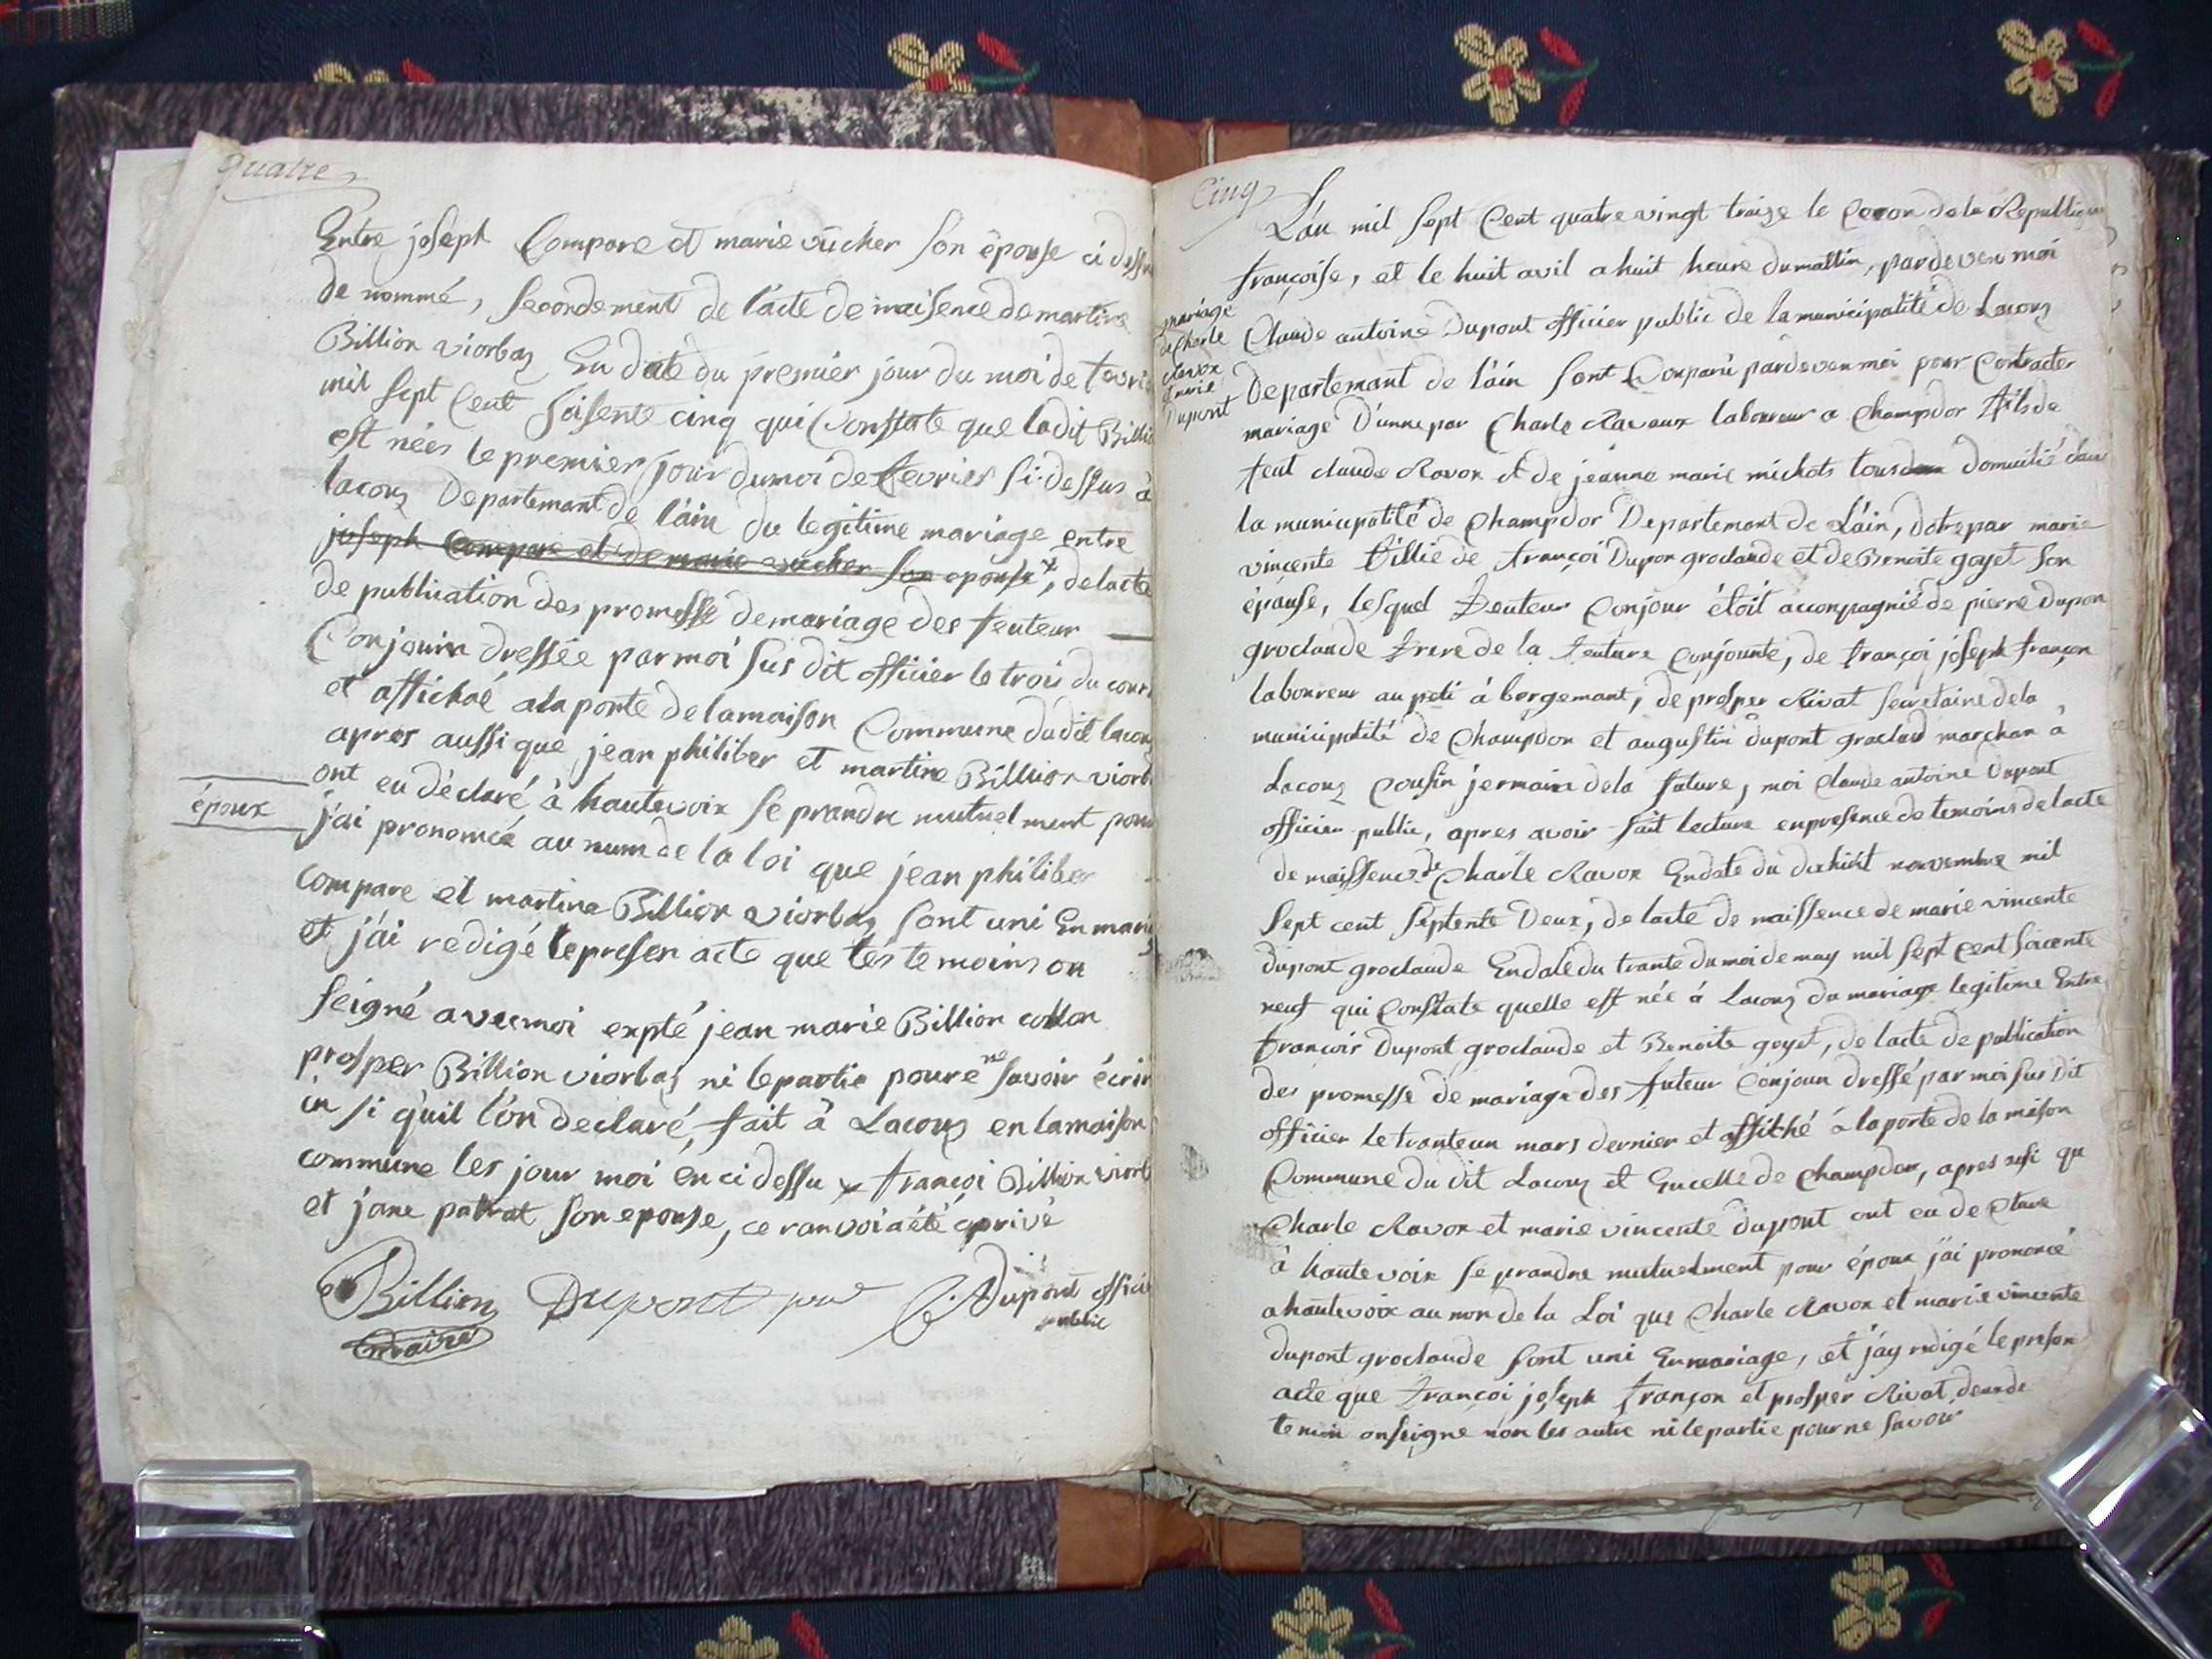 quatre
Entre joseph Compare et marie vücher son épouse ci dessu
de nommé, secondement de l'acte de naisence de martine
Billion viorbaz En date du premier jour du moi de fevrie
mil sept cent soisente cinq qui Constate que ladit Billi
est nées le premier jour du moi de fevries si-dessus à
lacouz Departemant de l'ain du legitime mariage entre
joseph Compare et de marie vücher son epouse x, de lacte
de publication des promesse de mariage des feuteur
Conjouin dressée par moi sus dit officier le trois du cour
et affichaé a la porte de la maison Commune dudit lacouz
apres aussi que jean philiber et martine Billion viorb
ont eu déclaré à hautevoix se prandre mutuelment pour
époux
j'ai prononcée au num de la loi que jean philiber
compare et martine Billion viorbaz sont uni En mari
et j'ai redigé le presen acte que les temoins on
seigné avecmoi expté jean marie Billion collon
prosper Billion viorbaz ni lepartie poure ne savoir écrir
in si q'uil l'on declaré, fait à Lacouz en lamaison
commune les jour moi en ci dessu x françoi Billion viorb
et jane patrat son epouse, ce ranvoi a été aprivé
Billion Dupont C. A Dupont officie
public
Cinq
L'an mil sept Cent quatre vingt traize le Secon de la Republique
françoise, et le huit avil a huit heure du mattin, pardeven moi
mariage
de Charle
Ravox
et marie
Dupont
Claude antoine Dupont officier public de la municipalité de Lacouz
Departemant de l'ain sont Comparù pardeven moi pour Contracter
mariage D'unne par Charle Ravoux laboureur a Champdor fils de
feut claude Ravox et de jeanne marie michots tous domicilié dans
la municipalité de Champdor Departemant de L'ain, dotrepar marie
vincente fillie de françoi Dupon groclaude et de Benoite goyet son
épouse, lesquel feuteur Conjour étoit accompagnié de pierre dupon
groclaude frere de la feuture Conjounte, de françoi joseph françon
laboureur au peti à borgemant, de prosper Rivat secretaire de la
municipalité de Champdor et augustin dupont groclaud marchan à
Lacouz Cousin jermain de la future, moi Claude antoine Dupont
officier public, apres avoir fait lecture enpresence de temoins de lacte
de naissence de Charle Ravox En date du dixhuit novembre mil
sept cent septente Deux, de lacte de naissence de marie vincente
dupont groclaude En date du trante du moi de may mil sept cent soicente
neuf qui Constate quelle est née à Lacouz du mariage legitime Entre
francoir Dupont groclaude et Benoite goyet, de lacte de publication
des promesse de mariage des futeur Conjoun dressé par moi sus dit
officier le tranteun mars dernier et affiché à la porte de la maison
Commune du dit Lacouz et Encelle de Champdor, apres ausi que
Charle Ravox et marie vincente dupont ont eu de Clare
à hautevoix se prandre mutuelment pour époux j'ai prononcé
a hautevoix au non de la Loi que Charle Ravox et marie vincente
dupont groclaude sont uni En mariage, et j'ay redigé le preson
acte que françoi joseph françon et prosper Rivat deux de
temoin onseigne non les autre ni lepartie pour ne savoir